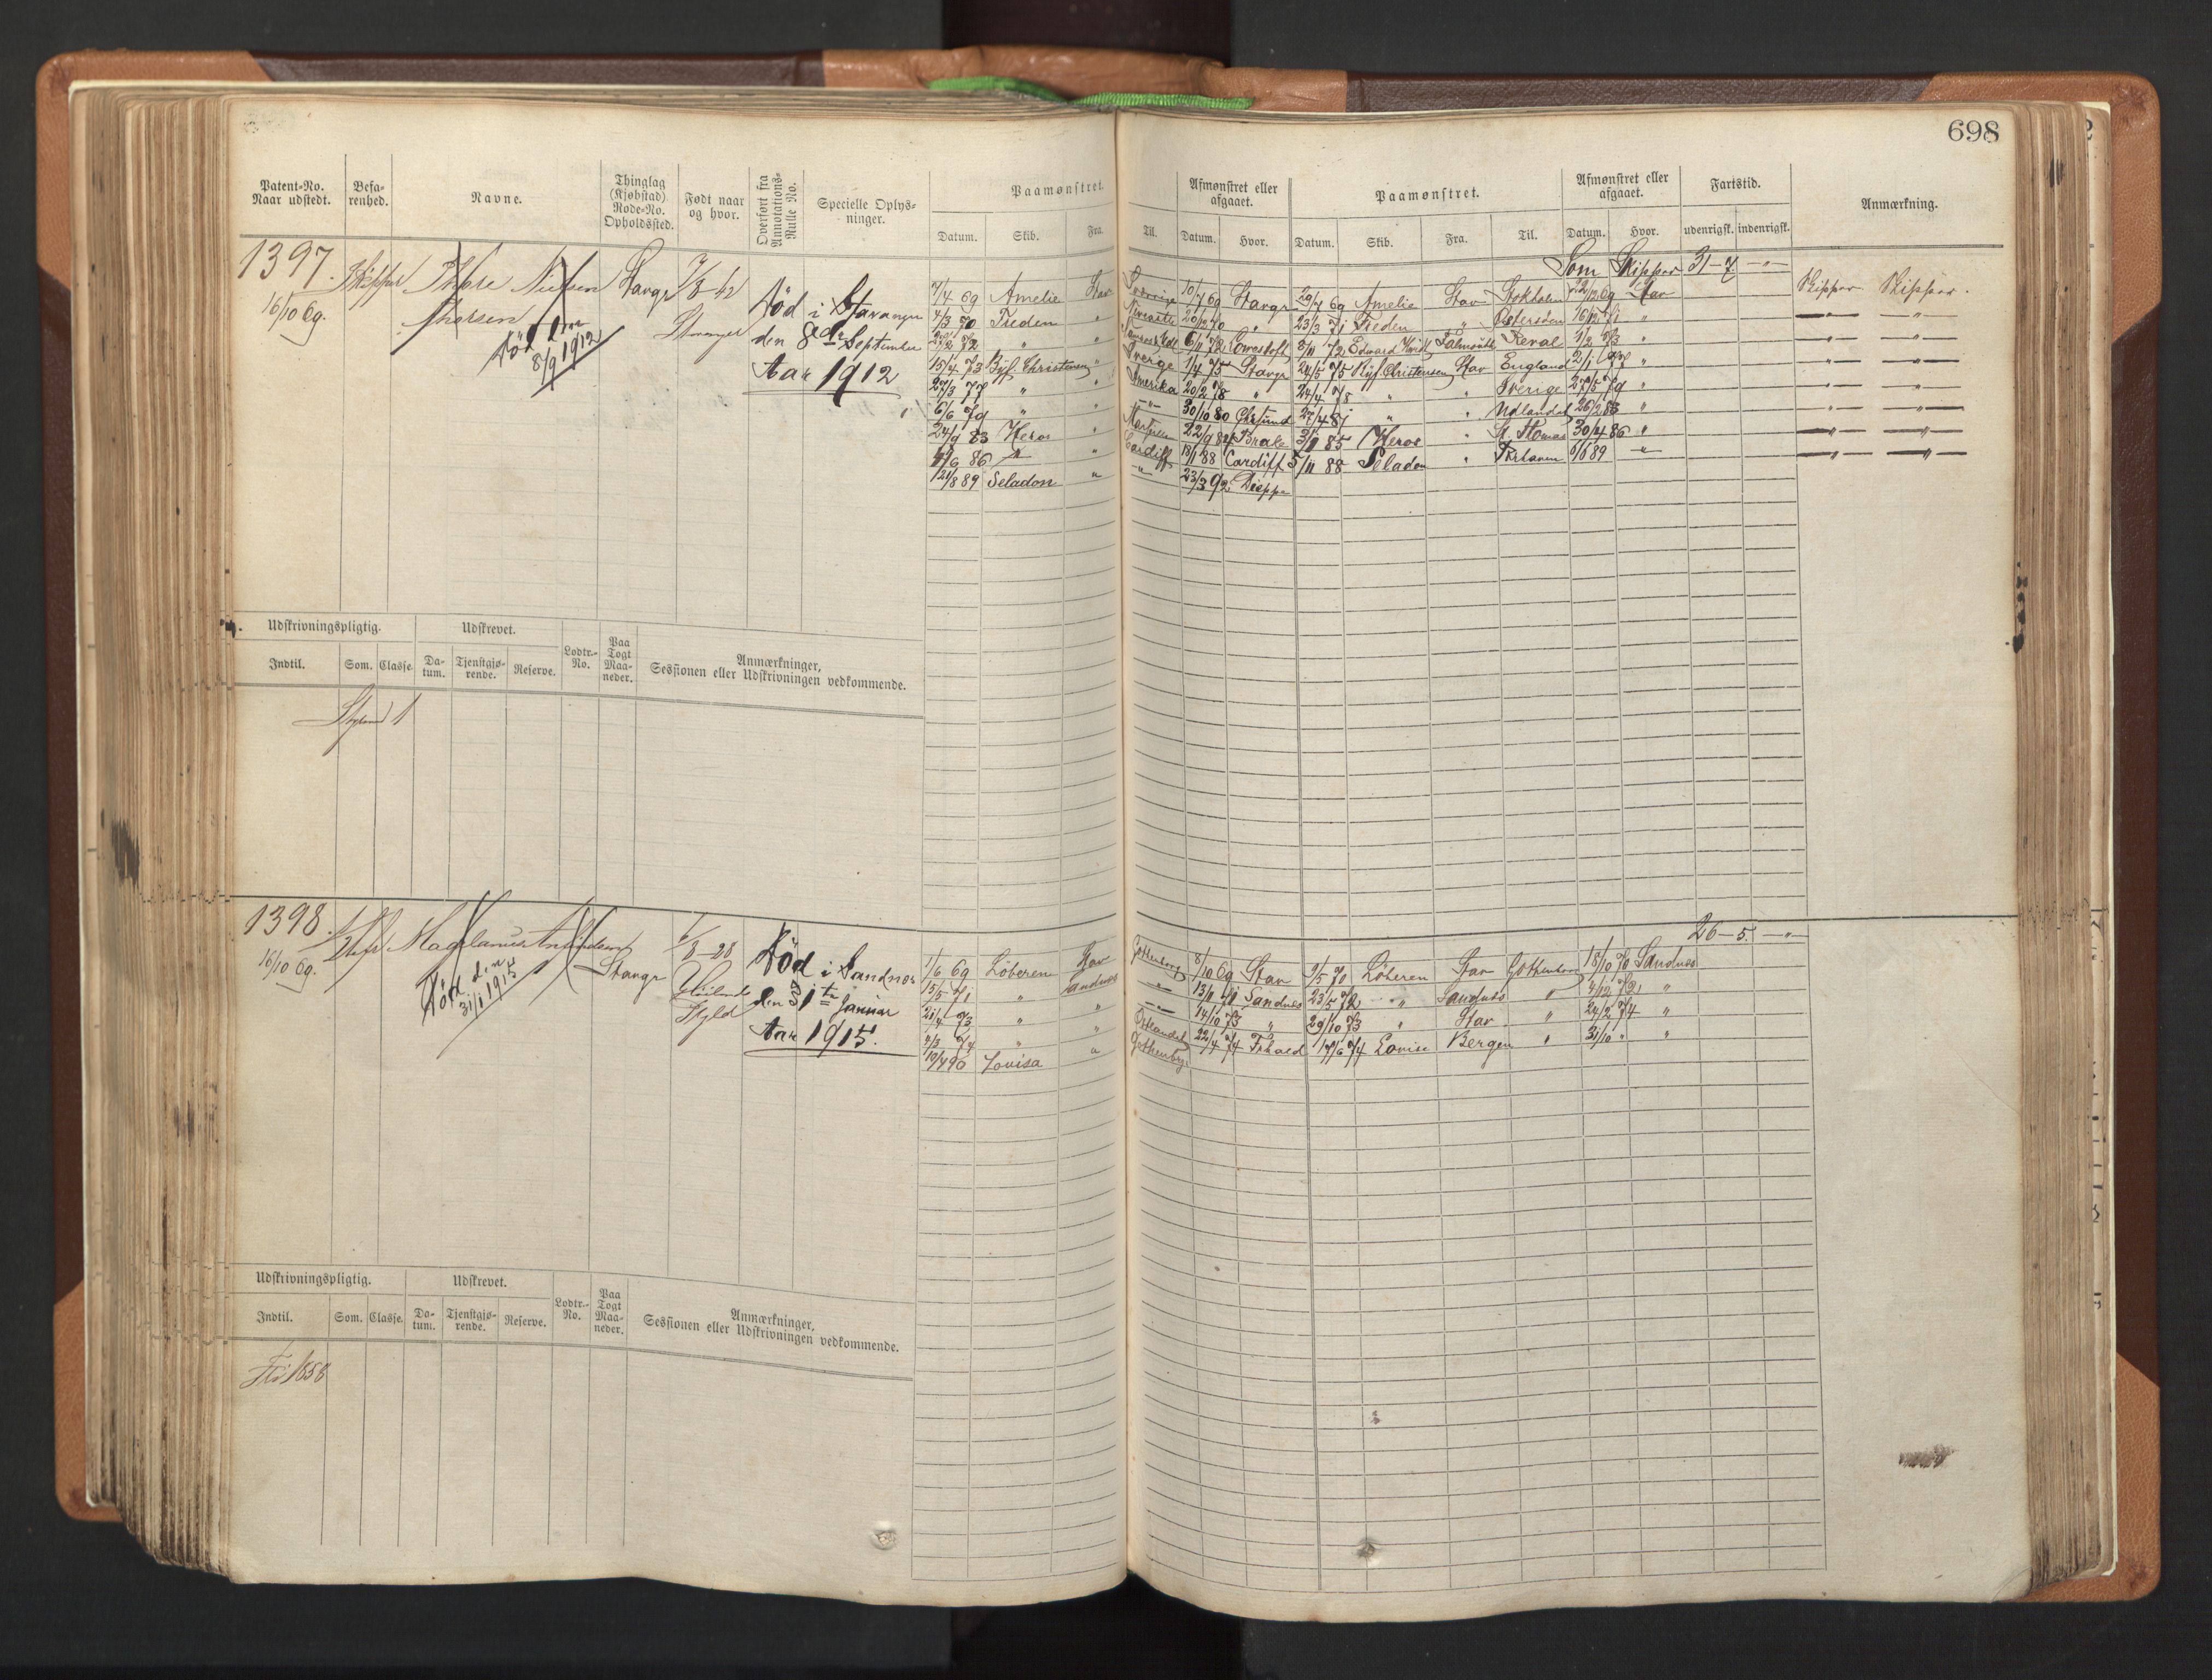 698
Patent-No. Naar udstedt. Befa-renhed. Navne. Thinglag (Kjøbstad) Rode-No. Opholdssted. Født naar og hvor. Overført fra Annotations-Rulle No. Specielle Oplys-ninger. Paamønstret. Afmønstret eller afgaaet. Paamønstret. Afmønstret eller afgaaet. Fartstid. Anmærkning.
Datum. Skib. Fra. Til. Datum. Hvor. Datum. Skib. Fra. Til. Datum. Hvor. udenrigsk. indenrigsk.
Som Skipper 31-7 -"-
1397. Skipper Thore Nielsen Stavgr 7/8-42
16/10 69. Thorsen Stavanger
Død den 8/9 1912
Død i Stavanger
den 8de September
Aar 1912
7/4 69 Amelie Stav Sverrige 10/7 69 Stavgr 29/7 69 Amelie Stav Stokholm 22/12 69 Stav Skipper Skipper.
4/3 70 Freden " Newcastle " 23/3 71 Freden " Østersøen 16/12 71 " -"- -"-
" " 6/11 72 Lowestoft 8/11 72 Edward Falmouth Reval 1/2 73 " -"- -"-
15/4 73 Byf. Christensen " Sverge 1/4 75 Stavgr 24/5 75 Byf Christensen Stav England 2/1 77 " -"- -"-
27/3 77 " " Amerika 20/2 78 " 24/4 78 " " Sverige 27/5 79 " -"- -"-
6/6 79 " " -"- 30/10 80 Chrsund 27/4 81 " " Udlandet 26/2 83 " -"- -"-
24/9 83 Heros " 22/9 84 Brake 3/1 85 Heros " St. Thomas 30/4 86 " -"- -"-
86 " " Cardiff 18/1 88 Cardiff 5/11 88 Seladon " 6/6 89 " -"- -"-
12/8 89 Seladon " " 23/3 92 Dieppe
Udskrivningspligtig. Udskrevet. Lodtr.-No. Paa Togt Maa-neder. Anmærkninger, Sessionen eller Udskrivningen vedkommende.
Indtil. Som. Classe. Da-tum. Tjenstgjø-rende. Reserve.
1
26-5. -"-
1398. Stavgr 6/8-28
16/10 69.
Død den 31/1 1915
Død i Sandnes
den 31te Januar
Aar 1915.
1/6 69 Løberen Stav Gothenborg 8/10 69 Stav 9/5 70 Løberen Stav Gothenborg 18/10 70 Sandnes
15/5 71 " Sandnes -"- 13/11 71 Sandnes 23/5 72 " Sandnes " 4/12 72 "
21/4 73 " " -"- 14/10 73 " 29/10 73 " Stav " 24/2 74 "
4/3 74 " " Østlandet 22/4 74 Frhald 17/6 74 Lovise Bergen " 31/10 " "
10/7 90 Lovisa " Gothenborg
Udskrivningspligtig. Udskrevet. Lodtr.-No. Paa Togt Maa-neder. Anmærkninger, Sessionen eller Udskrivningen vedkommende.
Indtil. Som. Classe. Da-tum. Tjenstgjø-rende. Reserve.
Fri 1858